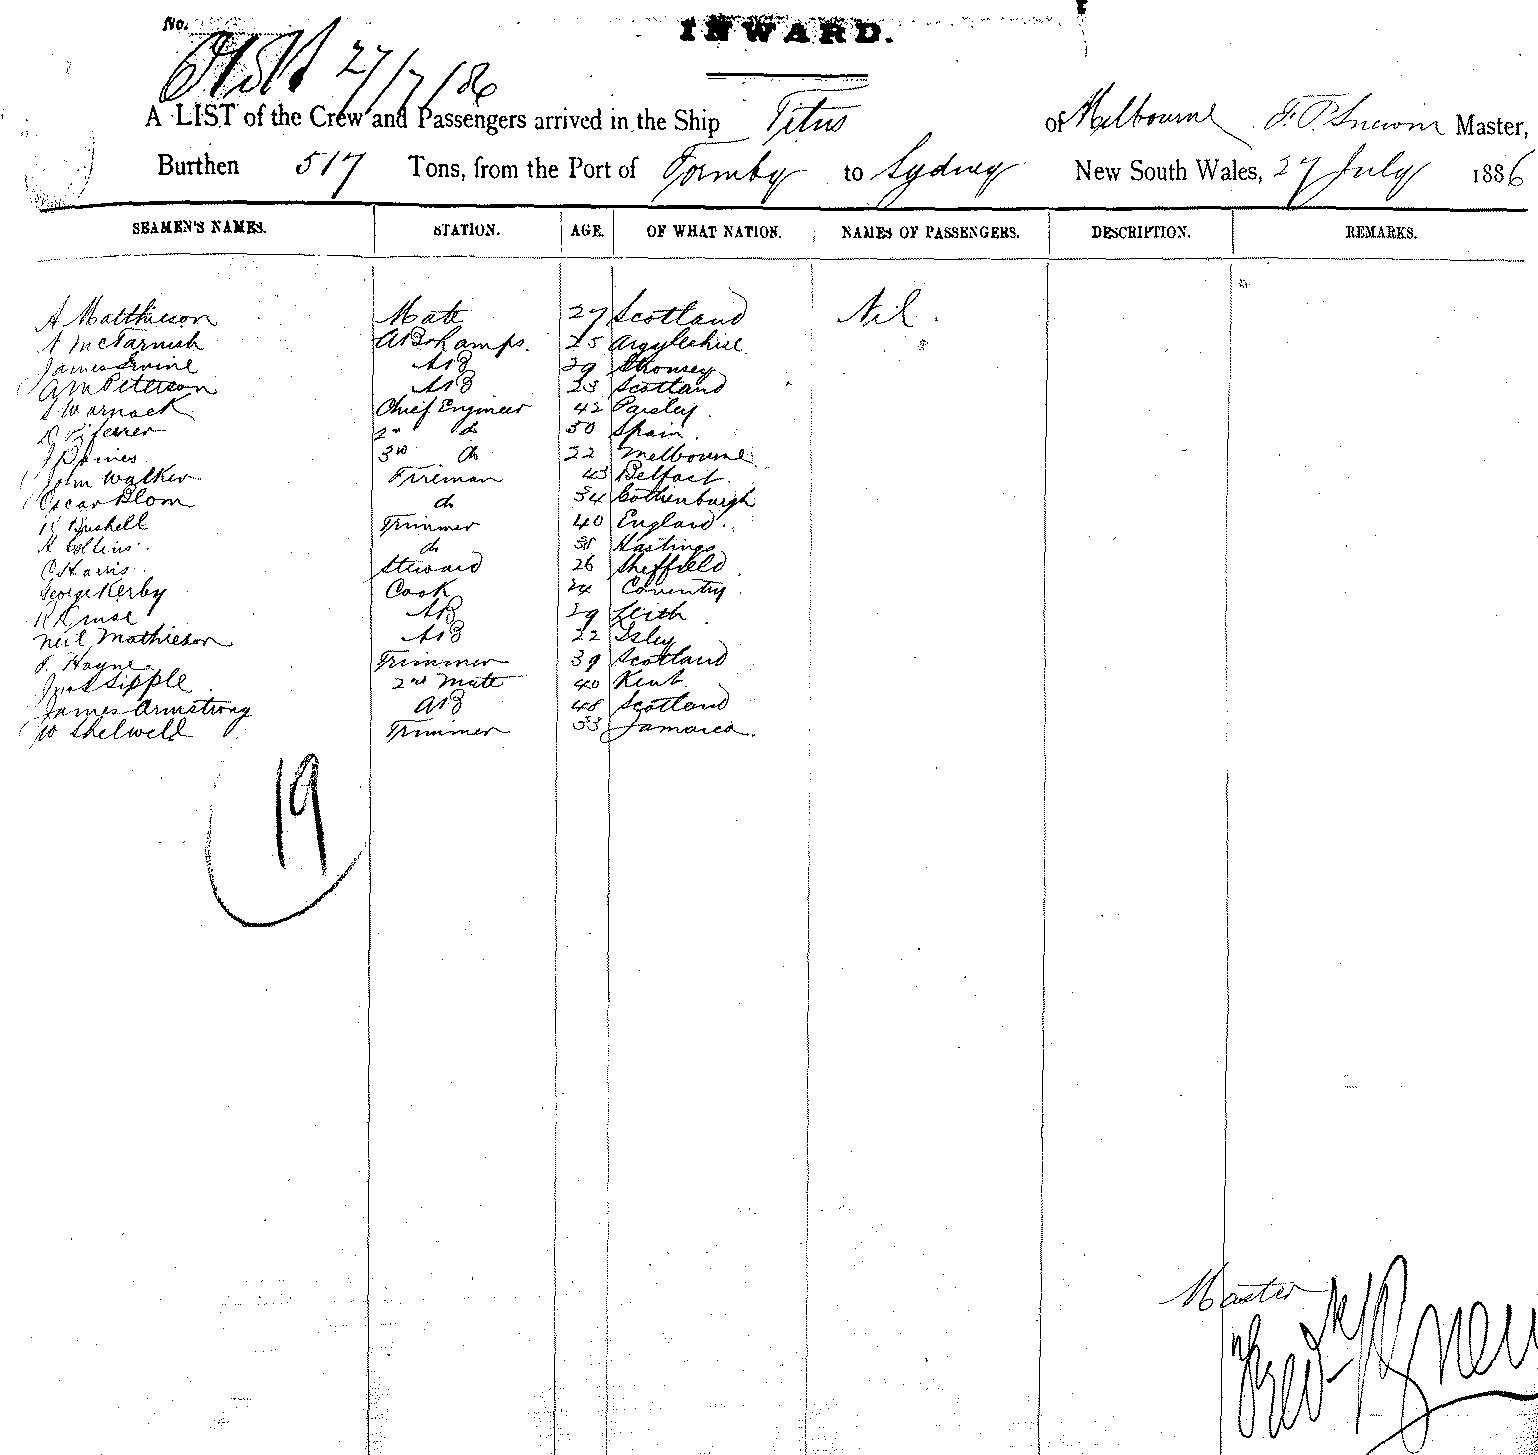 No.
INWARD.
27/7/86
A LIST of the Crew and Passengers arrived in the Ship Titus of Melbourne Master,
Burthen 517 Tons, from the Port of Formby to Sydney New South Wales, 27 July 1886
SEAMEN'S NAMES. STATION. AGE. OF WHAT NATION. NAMES OF PASSENGERS. DESCRIPTION. REMARKS.
A Matthieson Mate 27 Scotland Nil.
McTarnish AB & Lamps. 25 Argyleshire
James Irvine AB 29 Stronsey
Peterson AB 23 Scotland
Warnock Chief Engineer 42 Paisley
ferrer 2nd do 50 Spain.
3rd do 22 Melbourne
John Walker Fireman 43 Belfast.
Oscar Blom do 34 Gothenburgh
Bushell Trimmer 40 England.
Collins. do Hastings
C Harris. Steward 26 Sheffield.
George Kerby Cook 24 Coventry.
R Kruse AB 29 Leith.
Neil Mathieson AB 22 Isley
Hayne. Trimmer 39 Scotland
Sipple 2nd Mate 40 Kent
James Armstrong AB 48 Scotland
W Shelweld Trimmer 33 Jamaica.
19
Master